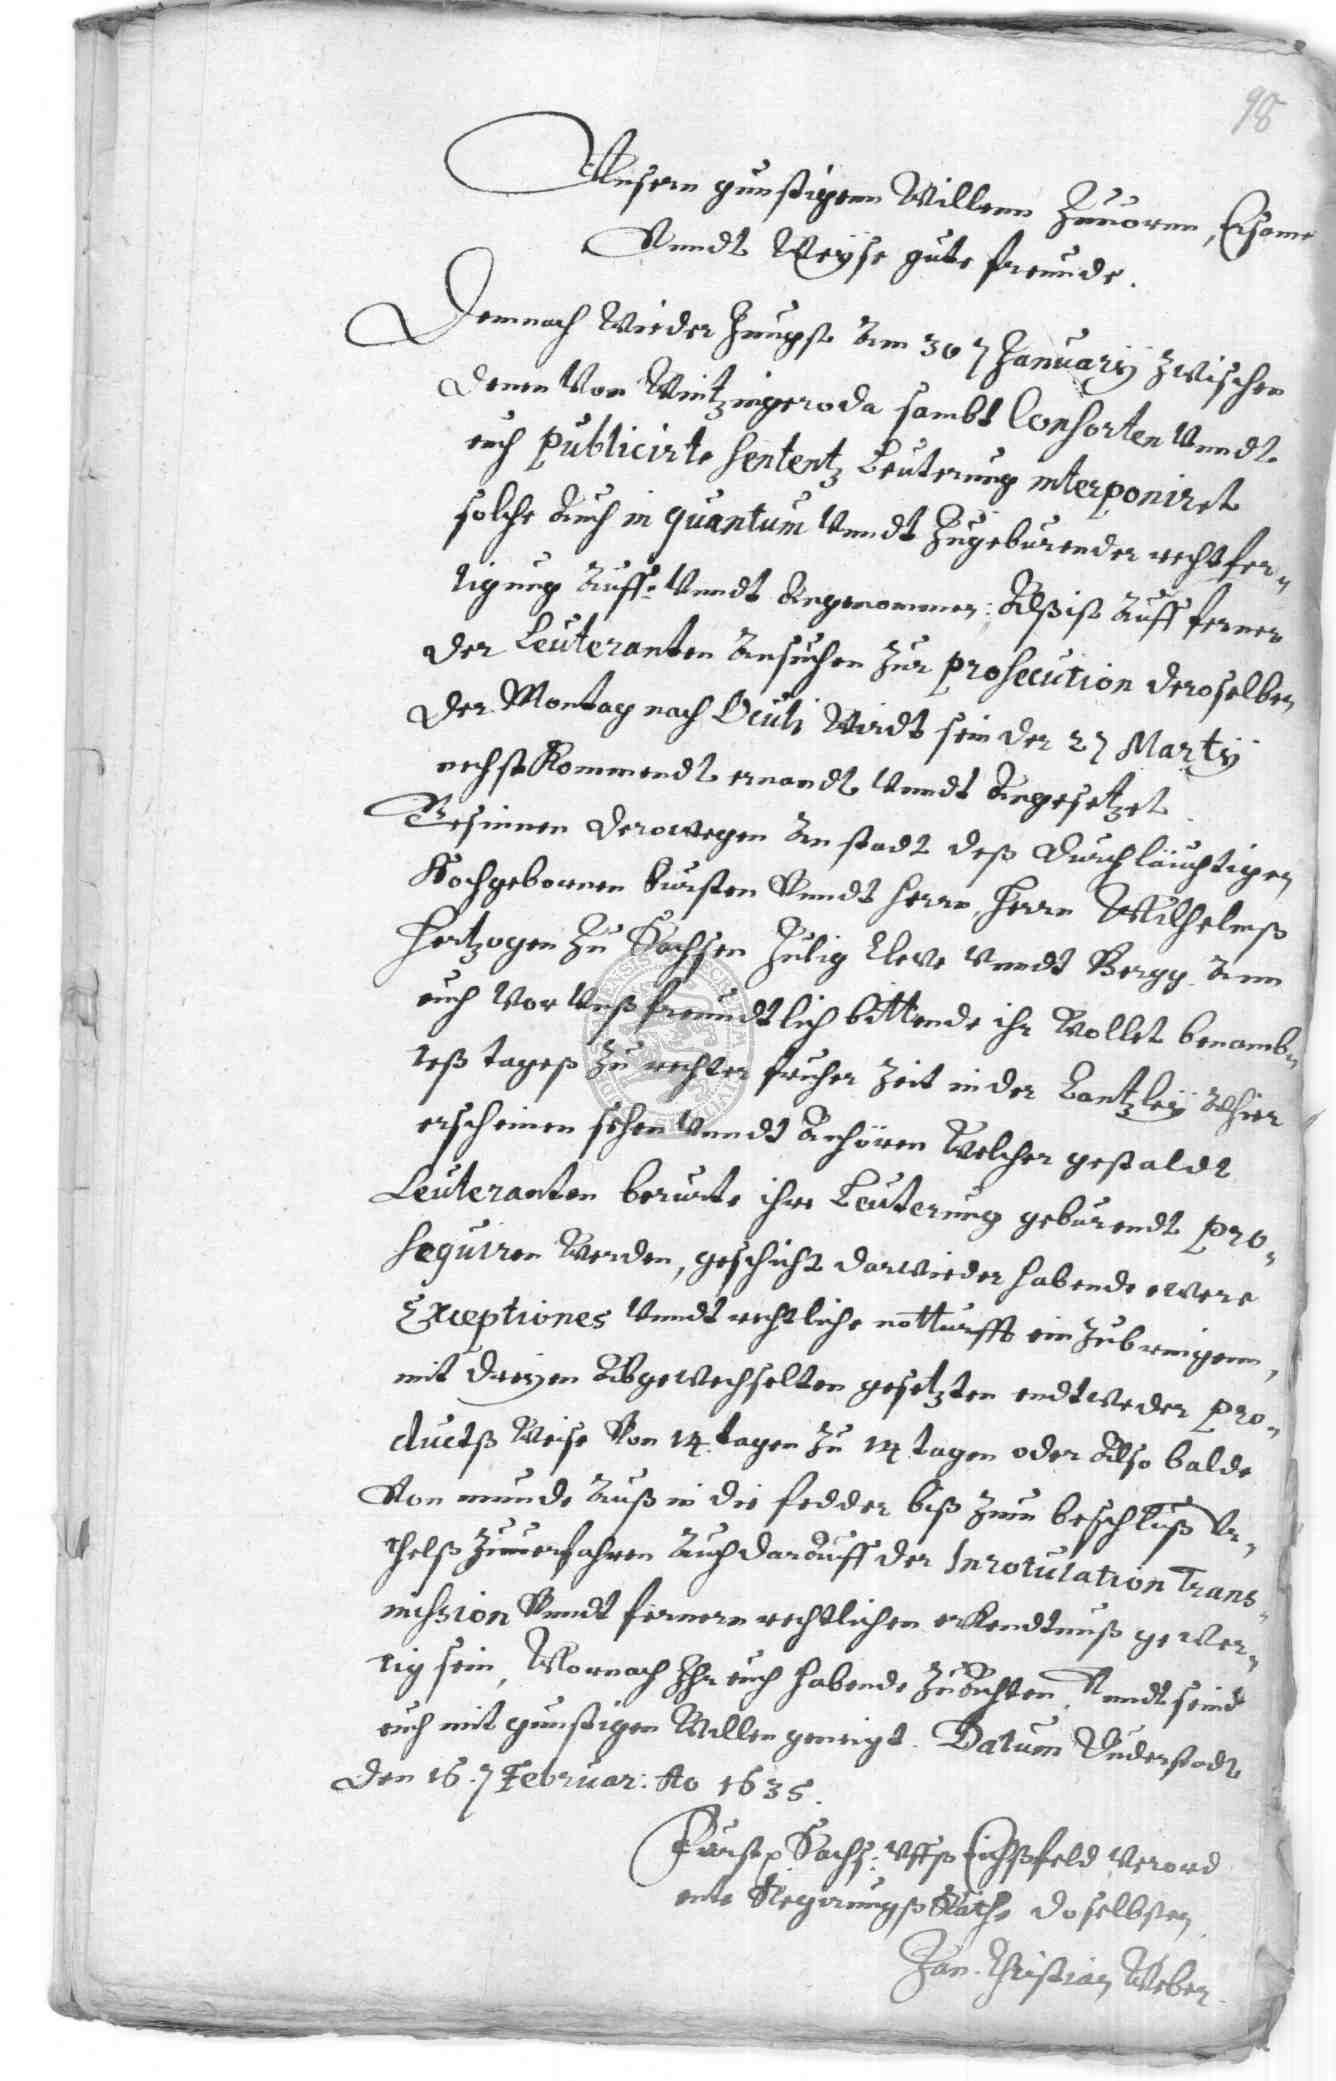 98
Unsern gunstigenn Willenn Zuuornn, Ersame
Vnndt Weyse gute freunde.
Demnach Wieder Jungst Am 30 Januarij Zwischen
denen Von Wintzingeroda sambt Consorten Vnndt
euch publicirte Sententz Leuterung interponiret
solche Auch in quantum Vnndt Zugeburender rechtfer-
tigung Auff- Vnndt Angenommen: Alß ist Auff ferner
der Leuteranten Ansuchen Zur prosecution deroselben
der Montag nach Oculi Wirdt sein der 2 Martij
nechst Kommendt ernandt Vnndt Angesetzet.
Gesinnen derowegen An stadt deß Durchläuchtigen
Hochgebornen Fursten Vnndt Herrn, Herrn Wilhelmß
Hertzogen Zu Sachsen Julig Cleve Vnndt Bergg Ann
euch Vor Vnß freundtlich bittende ihr Wollet benamb-
teß tageß Zu rechter fruher Zeit in der Cantzley Alhier
erscheinen sehen Vnndt Anhören Welcher gestaldt
Leuteranten berurte ihre Leuterung geburendt pro-
sequiren Werden, geschicht darwieder habende ewere
Exceptiones Vnndt rechtliche notturfft ein Zubringenn,
mit dreyen Abgewechselten gesetzten endtweder pro-
ductß Weise Von 14. tagen Zu 14 tagen oder Also balde
Von munde Auß in die fedder biß Zum beschluß Vr-
thelß Zuuerfahren Auch darauff der Inrotulation Trans-
mission Vnndt fernern rechtlichen erkendtnuß gewer-
tig sein, Wornach Ihr euch habende Zu Achten, Vnndt seind
euch mit gunstigen Willen geneigt. Datum Duderstadt
den 16. Februar: Ao 1635.
Furstl Sachs: Vffß Eichßfeld Verord
ente Regirungß Räthe doselbsten
Christian Weber